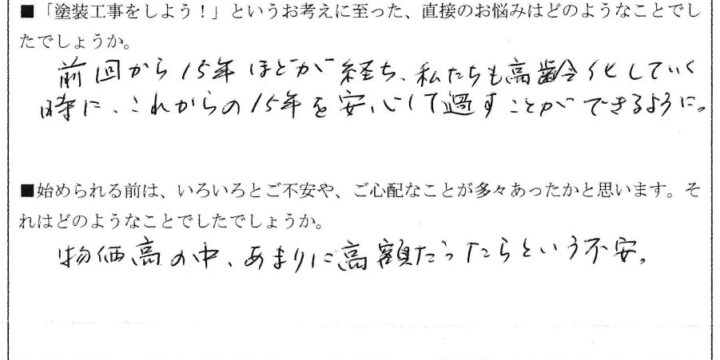 ■「塗装工事をしよう！」というお考えに至った、直接のお悩みはどのようなことでし
たでしょうか。
前回から15年ほどが経ち、私たちも高齢化していく
時に、これからの15年を安心して過すことができるように。
■始められる前は、いろいろとご不安や、ご心配なことが多々あったかと思います。そ
れはどのようなことでしたでしょうか。
物価高の中、あまりに高額だったらという不安。